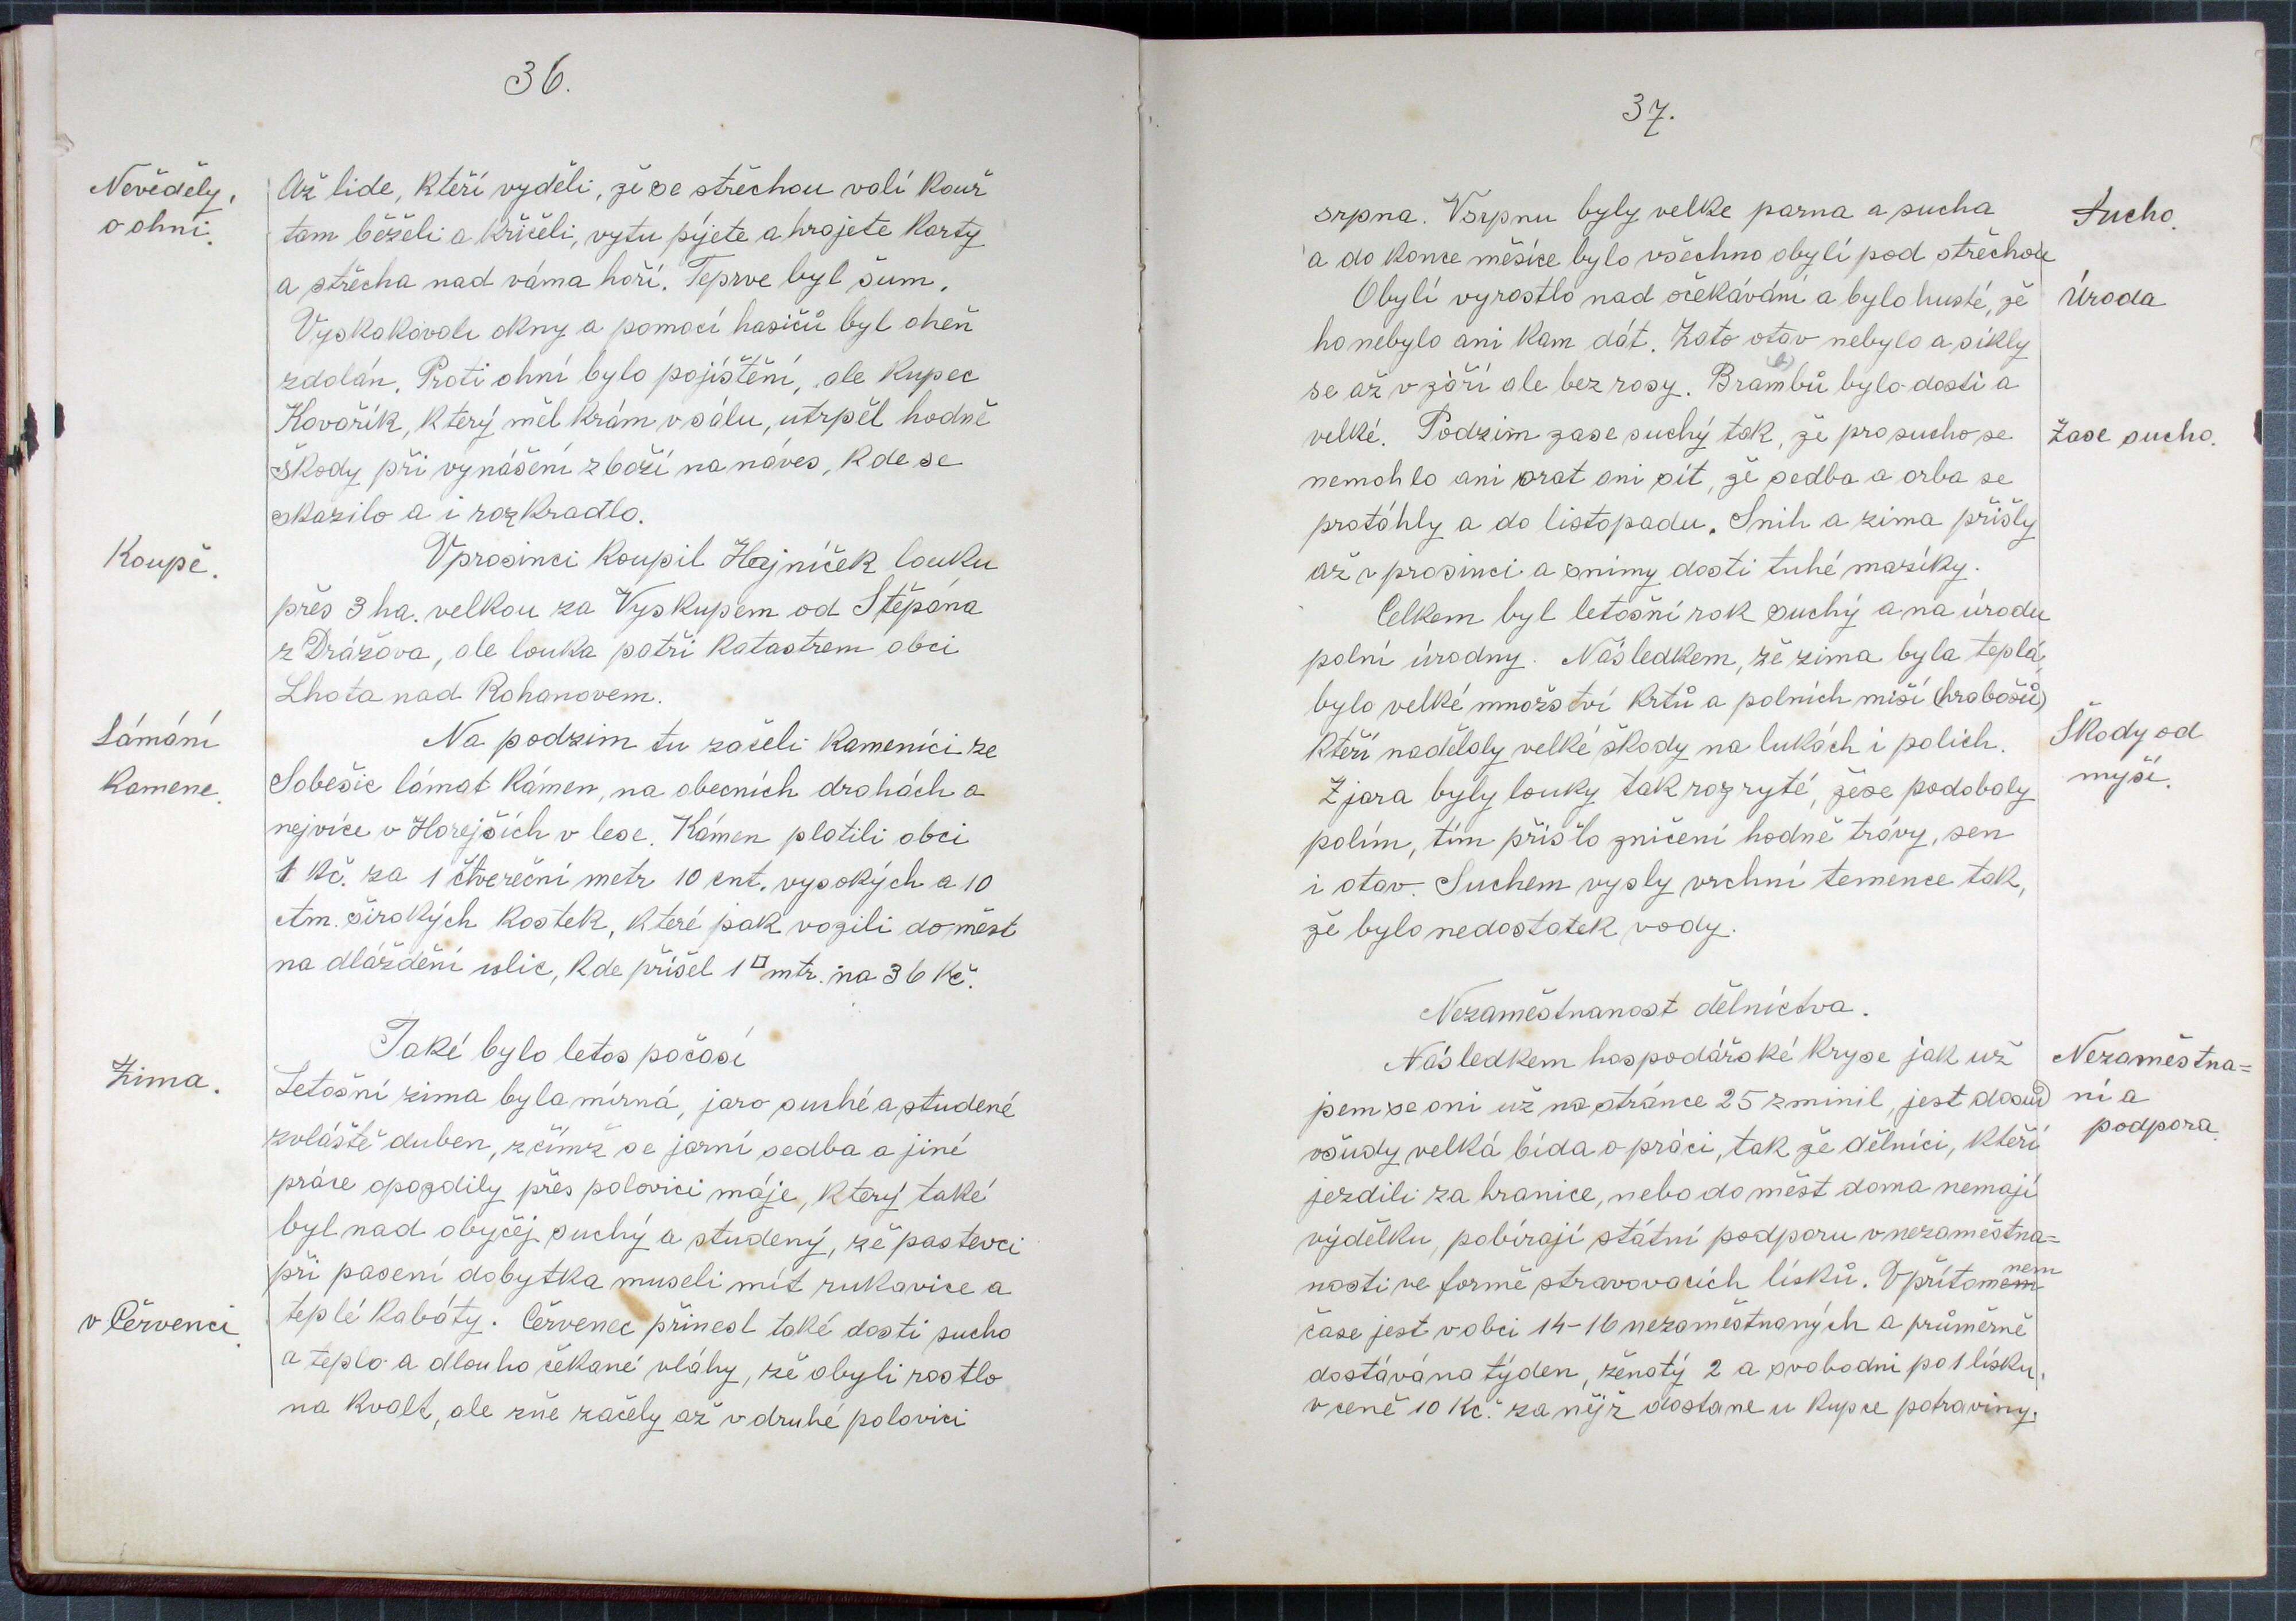 36.
Nevěděly,
o ohni.
Až lide, kteří vyděli, že se střechou valí kouř
tam běželi a křičeli, vytu pijete a hrajete karty
a střecha nad váma hoří. Teprve byl šum.
Vyskakovali okny a pomocí hasičů byl oheň
zdolán. Proti ohni bylo pojištění, ale kupec
Kovařík, který měl krám v sálu, utrpěl hodně
škody při vynášení zboží na náves, kde se
skazilo a i rozkradlo.
Koupě.
Vprosinci koupil Hajníček louku
přes 3 ha. velkou za Vyskupem od Štěpána
z Drážova, ale louka patři katastrem obci
Lhota nad Rohanovem.
Lámání
kamene.
Na podzim tu začeli kameníci ze
Soběšic lámat kámen, na obecních drahách a
nejvíce v Horejších v lese. Kámen platili obci
1 Kč. za 1 čtvereční metr 10 cnt. vysokých a 10
ctm. širokých kostek, které pak vozili do měst
na dláždění ulic, kde přišel 1 □ mtr. na 36 Kč.
Také bylo letos počasí
Zima.
Letošní zima byla mírná, jaro suché a studené
zvláště duben, z čímž se jarní sedba a jiné
práce opozdily přes polovici máje, který také
byl nad obyčej suchý a studený, že pastevci
při pasení dobytka museli mít rukavice a
teplé kabáty. Červenec přinesl také dosti sucho
v Červenci.
a teplo a dlouho čekané vláhy, že obyli rostlo
na kvalt, ale žně začely až v druhé polovici
37.
srpna. Vsrpnu byly velke parna a sucha
Sucho.
a do konce měsíce bylo všechno obylí pod střechou
Obylí vyrostlo nad očekávání a bylo husté, že
Úroda
ho nebylo ani kam dát. Zato otav nebylo a sikly
se až v září ale bez rosy. Brambů bylo dosti a
velké. Podzim zase suchý tak, že pro sucho se
Zase sucho.
nemohlo ani orat ani sít, že sedba a orba se
protáhly a do listopadu. Snih a zima přišly
až v prosinci a snimy dosti tuhé mazíky.
Celkem byl letošní rok suchý a na úrodu
polní úrodny. Následkem, že zima byla teplá,
bylo velké množství krtů a polních miší (hrabošů)
kteří nadělaly velké škody na lukách i polich.
Škody od
myší.
Z jara byly louky tak rozryté, žese podobaly
polím, tím přišlo zničení hodně trávy, sen
i otav. Suchem vysly vrchní temence tak,
že bylo nedostatek vody.
Nezaměstnanost dělnictva.
Následkem hospodářské kryse jak už
Nezaměstna=
ní a
podpora.
jsem se oni už na stránce 25 zminil, jest dosud
všudy velká bída o práci, tak že dělníci, kteří
jezdili za hranice, nebo do měst doma nemají
výdělku, pobírají státní podporu v nezaměstna=
nosti ve formě stravovacích lísků. V přítomem
nem
čase jest v obci 14-16 nezaměstnaných a průměrně
dostává na týden, ženatý 2 a svobodni po 1 lísku,
v ceně 10 Kč. za nějž dostane u kupce potraviny.